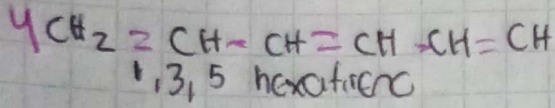 4 CH2 = CH - CH = CH - CH = CH
1,3,5 hexatrieno